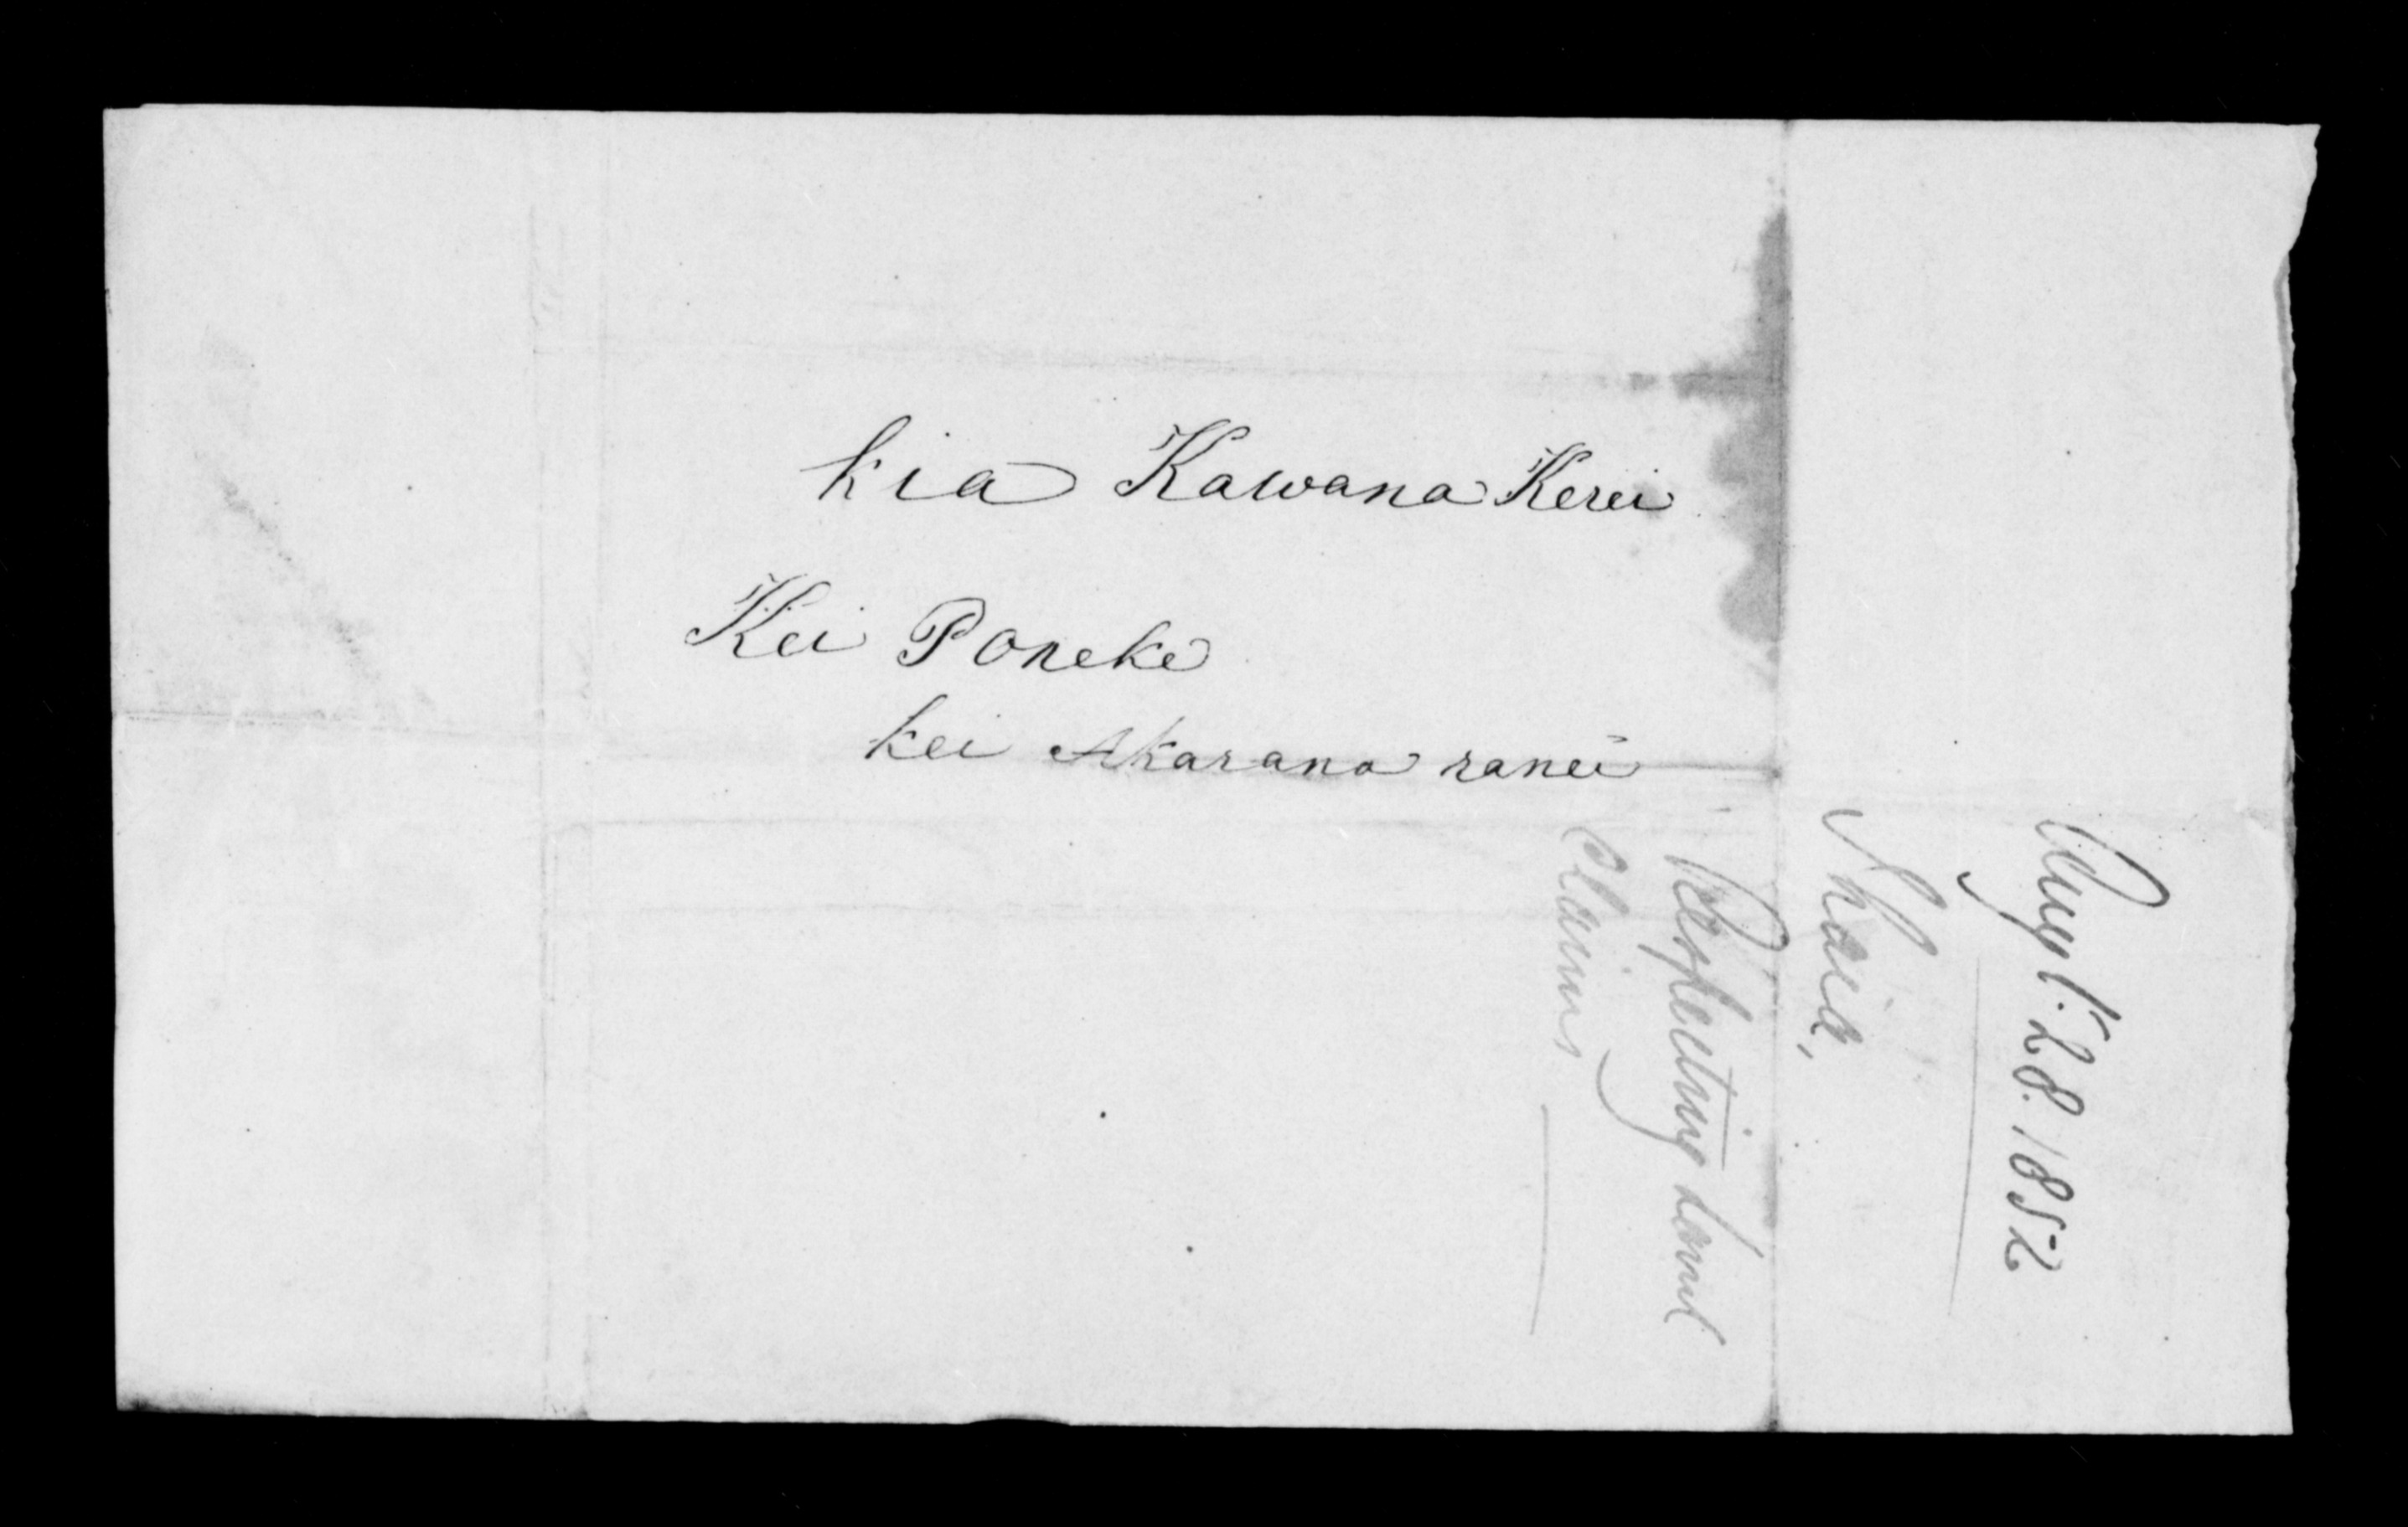 kia Kawana Kerei
Kei Poneke
kei Akarana ranei
Augt. 28. 1852
Ihaia,
Respecting Land
Claims